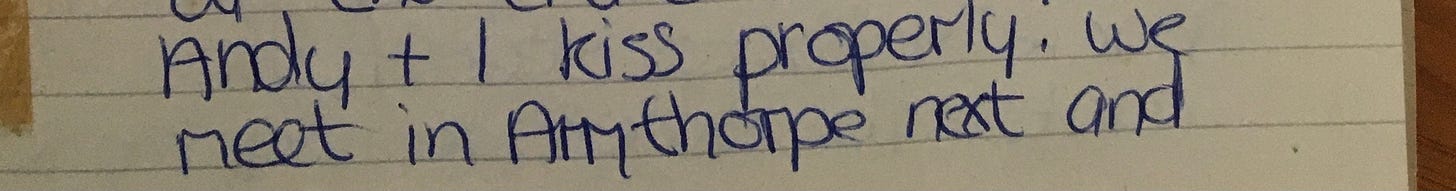 Andy + I kiss properly. We
meet in Armthorpe next and